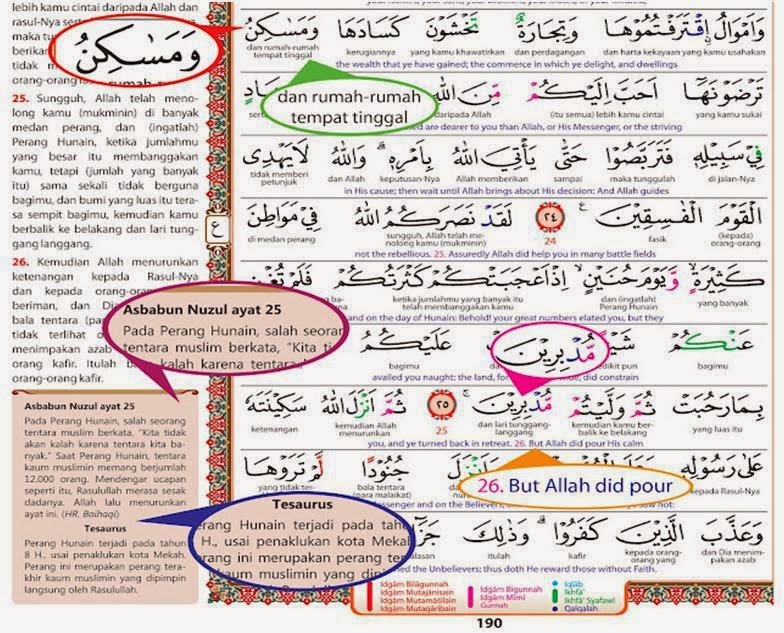 lebih kamu cintai daripada Allah dan
rasul-Nya
maka
berikan
tidak m
orang-orang
وَمَسٰكِنُ
25. Sungguh, Allah telah meno-
long kamu (mukminin) di banyak
medan perang, dan (ingatlah)
Perang Hunain, ketika jumlahmu
yang besar itu membanggakan
kamu, tetapi (jumlah yang banyak
itu) sama sekali tidak berguna
bagimu, dan bumi yang luas itu tera-
sa sempit bagimu, kemudian kamu
berbalik ke belakang dan lari tung-
gang langgang.
26. Kemudian Allah menurunkan
ketenangan kepada Rasul-Nya
dan kepada orang-oran
beriman, dan Dia
bala tentara (pa
tidak terlihat o
menimpakan azab
orang kafir. Itulah b
orang-orang kafir.
Asbabun Nuzul ayat 25
Pada Perang Hunain, salah seoran
tentara muslim berkata, "Kita ti
kalah karena tentara
Asbabun Nuzul ayat 25
Pada Perang Hunain, salah seorang
tentara muslim berkata, "Kita tidak
akan kalah karena tentara kita ba-
nyak." Saat Perang Hunain, tentara
kaum muslimin memang berjumlah
12.000 orang. Mendengar ucapan
seperti itu, Rasulullah merasa sesak
dadanya. Allah lalu menurunkan
ayat ini. (HR. Baihaqi)
Tesaurus
Perang Hunain terjadi pada tahun
8 H., usai penaklukan kota Mekah.
Perang ini merupakan perang tera-
khir kaum muslimin yang dipimpin
langsung oleh Rasulullah.
Tesaurus
erang Hunain terjadi pada tahu
H., usai penaklukan kota Mekah
erang ini merupakan perang te
kaum muslimin yang dipi
ع
وَاَمْوَالُ ۨاقْتَرَفْتُمُوْهَا وَتِجَارَةٌ تَخْشَوْنَ كَسَادَهَا وَمَسٰكِنُ
dan harta kekayaan yang kamu usahakan dan perdagangan yang kamu khawatirkan kerugiannya dan rumah-rumah tempat tinggal
the wealth that ye have gained; the commerce in which ye delight, and dwellings
dan rumah-rumah
tempat tinggal
تَرْضَوْنَهَآ اَحَبَّ اِلَيْكُمْ مِّنَ اللّٰهِ
yang kamu sukai (itu semua) lebih kamu cintai daripada Allah
ed are dearer to you than Allah, or His Messenger, or the striving
فِيْ سَبِيْلِهٖ فَتَرَبَّصُوْا حَتّٰى يَأْتِيَ اللّٰهُ بِاَمْرِهٖۗ وَاللّٰهُ لَا يَهْدِى
di jalan-Nya maka tunggulah sampai Allah memberikan keputusan-Nya dan Allah tidak memberi petunjuk
in His cause; then wait until Allah brings about His decision: And Allah guides
الْقَوْمَ الْفٰسِقِيْنَ ۝٢٤ لَقَدْ نَصَرَكُمُ اللّٰهُ فِيْ مَوَاطِنَ
(kepada) orang-orang fasik 24 sungguh, Allah telah me-nolong kamu (mukminin) di medan perang
not the rebellious. 25. Assuredly Allah did help you in many battle fields
كَثِيْرَةٍۙ وَّيَوْمَ حُنَيْنٍۙ اِذْ اَعْجَبَتْكُمْ كَثْرَتُكُمْ فَلَمْ تُغْنِ
yang banyak dan (ingatlah) Perang Hunain ketika jumlahmu yang banyak itu telah membanggakan kamu
and on the day of Hunain: Behold! your great numbers elated you, but they
عَنْكُمْ عَلَيْكُمُ
bagimu dikit pun bagimu
availed you naught: the land, for did constrain
مُّدْبِرِيْنَ
بِمَا رَحُبَتْ ثُمَّ وَلَّيْتُمْ مُّدْبِرِيْنَ ۝٢٥ ثُمَّ اَنْزَلَ اللّٰهُ سَكِيْنَتَهٗ
yang luas itu kemudian kamu ber-balik ke belakang dan lari tunggang-langgang 25 kemudian Allah menurunkan ketenangan
you, and ye turned back in retreat. 26. But Allah did pour His calm
26. But Allah did pour
عَلٰى رَسُوْلِهٖ جُنُوْدًا لَّمْ تَرَوْهَا
kepada Rasul-Nya bala tentara (para malaikat) yang tidak ter-
ssenger and on the Believers, not:
وَعَذَّبَ الَّذِيْنَ كَفَرُوْاۗ وَذٰلِكَ
dan Dia menim-pakan azab kepada orang-orang yang kafir itulah alasan
the Unbelievers; thus doth He reward those without Faith.
Idgām Bilāgunnah
Idgām Mutajānisain
Idgām Mutamāṡilain
Idgām Mutaqāribain
Idgām Bigunnah
Idgām Mīmī
Gunnah
Iqlāb
Ikhfā'
Ikhfā' Syafawī
Qalqalah
190